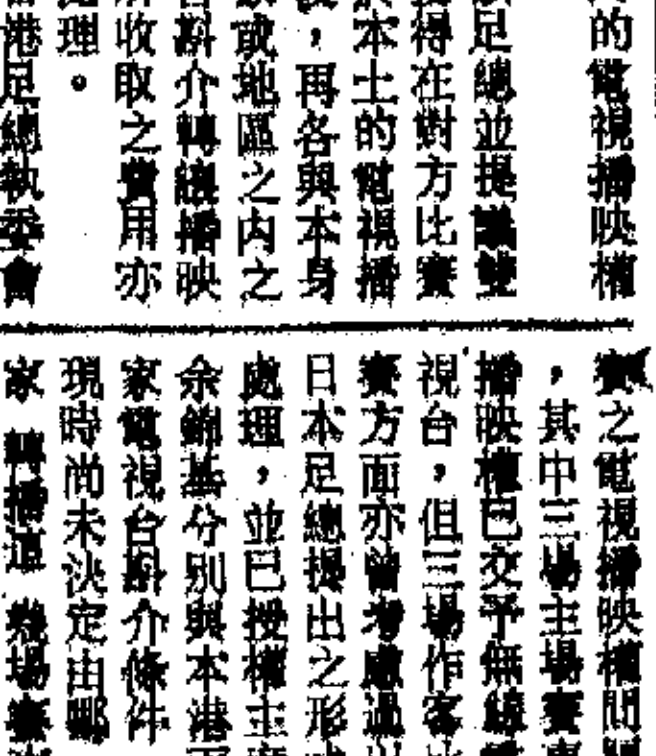 的電視播映權
足總並提議雙
得在對方比賽
本土的電視播
，再各與本身
或地區之內之
斟介轉讓播映
收取之費用亦
理。
港足總執委會
賽之電視播映權問
，其中三場主場賽
播映權已交予無綫
視台，但三場作客
賽方面亦曾考慮過以
日本足總提出之形
處理，並已授權主
余錦基分別與本港
家電視台斟介條件
現時尚未決定由哪
家轉播這幾場賽